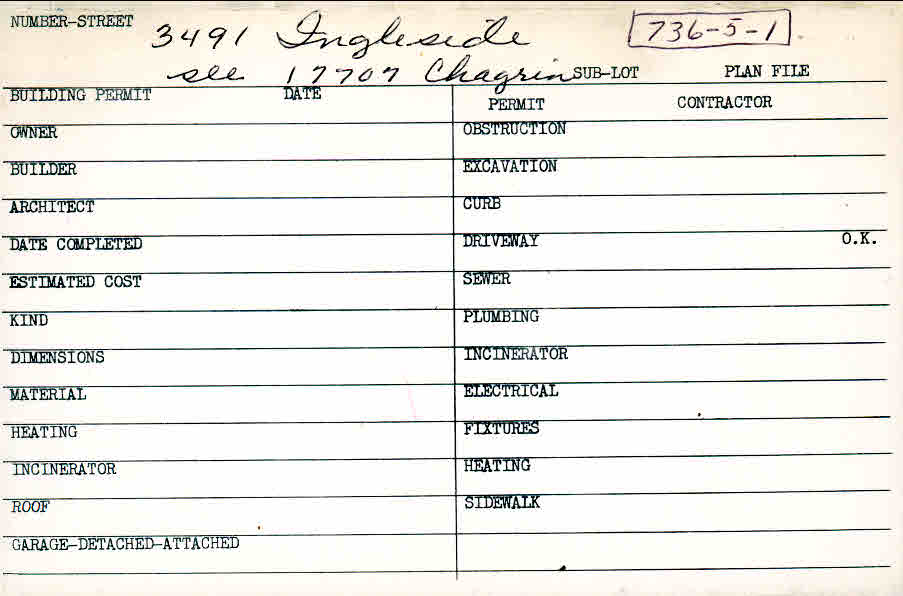 NUMBER-STREET 3491 Ingleside 736-5-1
see 17707 Chagrin SUB-LOT PLAN FILE
BUILDING PERMIT DATE
PERMIT CONTRACTOR
OWNER
OBSTRUCTION
BUILDER
EXCAVATION
ARCHITECT
CURB
DATE COMPLETED
DRIVEWAY O.K.
ESTIMATED COST
SEWER
KIND
PLUMBING
DIMENSIONS
INCINERATOR
MATERIAL
ELECTRICAL
HEATING
FIXTURES
INCINERATOR
HEATING
ROOF
SIDEWALK
GARAGE-DETACHED-ATTACHED